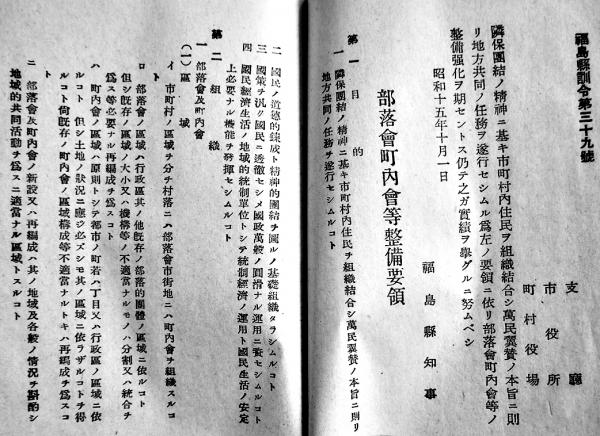 福島縣訓令第三十九號
支廳
市役所
町村役場
隣保團結ノ精神ニ基キ市町村内住民ヲ組織結合シ萬民翼贊ノ本旨ニ則
リ地方共同ノ任務ヲ遂行セシムル爲左ノ要領ニ依リ部落會町内會等ノ
整備强化ヲ期セントス仍テ之ガ實績ヲ擧グルニ努ムベシ
昭和十五年十月一日
福島縣知事
部落會町内會等整備要領
第一 目的
一 隣保團結ノ精神ニ基キ市町村内住民ヲ組織結合シ萬民翼贊ノ本旨ニ則リ
地方共同ノ任務ヲ遂行セシムルコト
二 國民ノ道德的鍊成ト精神的團結ヲ圖ルノ基礎組織タラシムルコト
三 國策ヲ汎ク國民ニ透徹セシメ國政萬般ノ圓滑ナル運用ニ資セシムルコト
四 國民經濟生活ノ地域的統制單位トシテ統制經濟ノ運用ト國民生活ノ安定
上必要ナル機能ヲ發揮セシムルコト
第二 組織
一 部落會及町内會
(一) 區域
イ 市町村ノ區域ヲ分チ村落ニハ部落會市街地ニハ町内會ヲ組織スルコト
ロ 部落會ノ區域ハ行政區其ノ他既存ノ部落的團體ノ區域ニ依ルコト
但シ既存ノ區域ノ大小又ハ機構等ノ不適當ナルモノハ分割又ハ統合ヲ
爲ス等必要ナル再編成ヲ爲スコト
ハ 町内會ノ區域ハ原則トシテ都市ノ町若ハ丁目又ハ行政區ノ區域ニ依
ルコト 但シ土地ノ狀況ニ應ジ必ズシモ其ノ區域ニ依ラザルコトヲ得
ルコト尙既存ノ町内會ノ區域構成等不適當ナルトキハ再編成ヲ爲スコ
ト
ニ 部落會及町内會ノ新設又ハ再編成ハ其ノ地域及各般ノ情況ヲ斟酌シ
地域的共同活動ヲ爲スニ適當ナル區域トスルコト